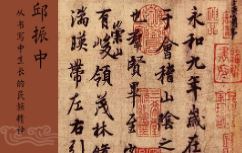 邱振中
从书写中生长的民族精神
永和九年歲在
于會稽山陰之
也羣賢畢至少
有崇山峻領茂林脩
湍暎帶左右引